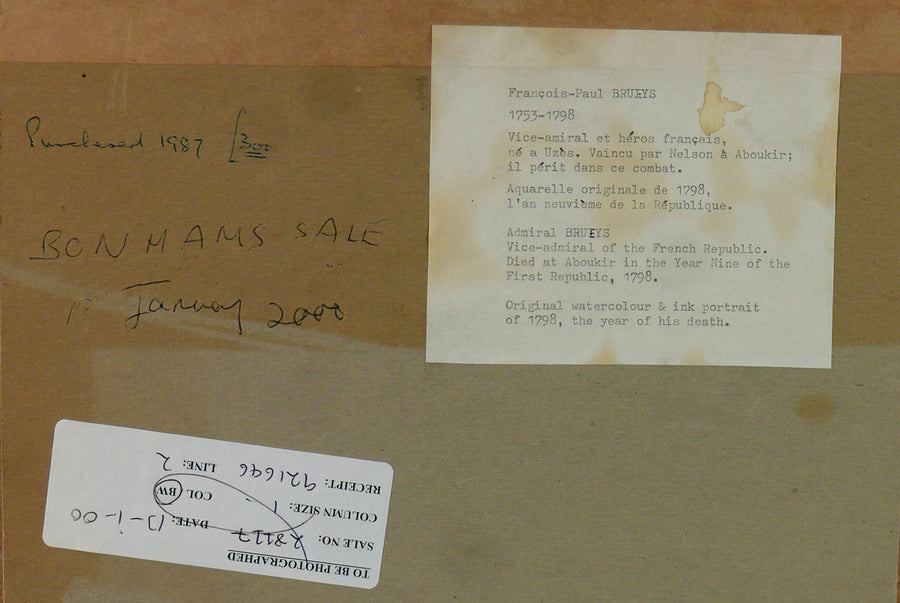 Purchased 1987 [300
BONHAMS SALE
13 January 2000
François-Paul BRUEYS
1753-1798
Vice-amiral et héros français,
né a Uzès. Vaincu par Nelson à Aboukir;
il périt dans ce combat.
Aquarelle originale de 1798,
l'an neuvième de la République.
Admiral BRUEYS
Vice-admiral of the French Republic.
Died at Aboukir in the Year Nine of the
First Republic, 1798.
Original watercolour & ink portrait
of 1798, the year of his death.
TO BE PHOTOGRAPHED
SALE NO: 28117 DATE: 13-1-00
COLUMN SIZE: 1 COL BW
RECEIPT: 921646 LINE: 2